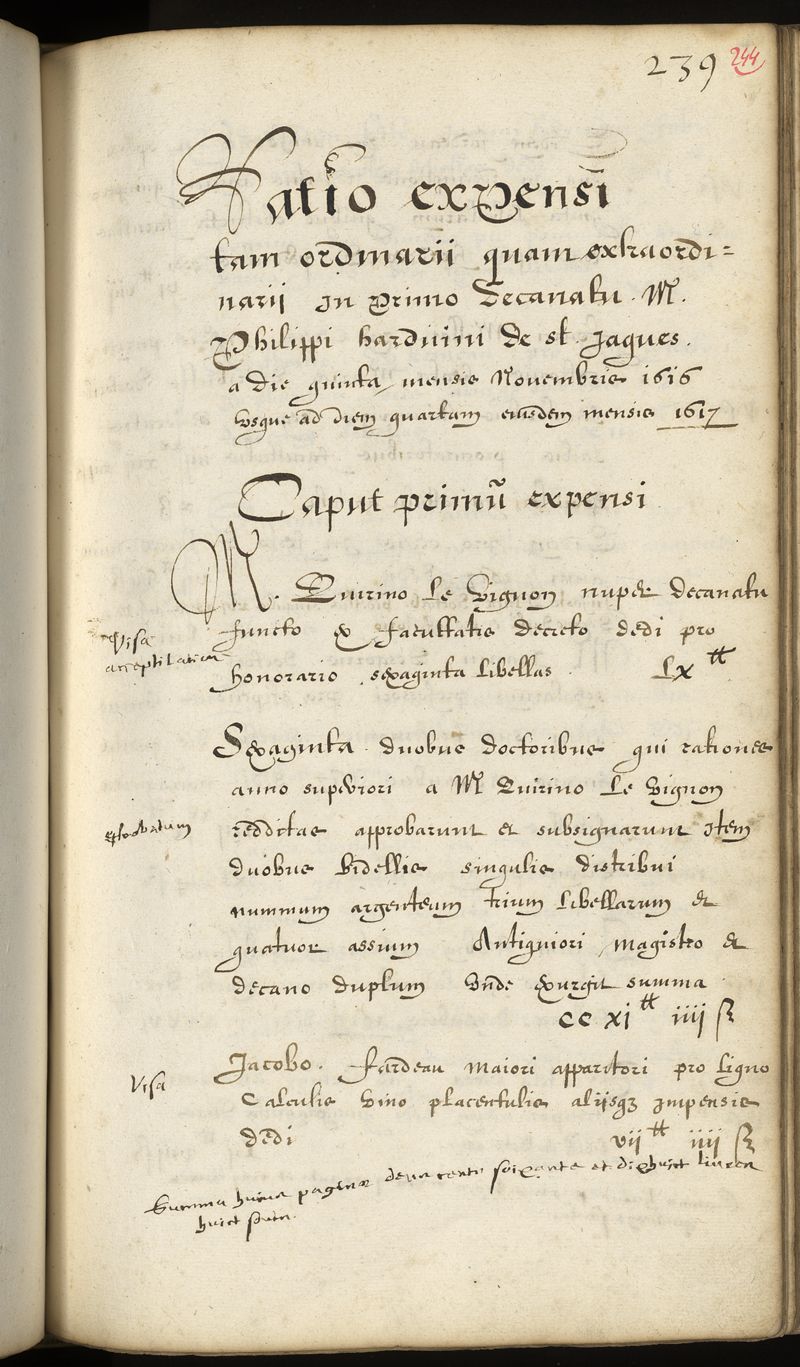 239 244
Ratio expensi
tam ordinarii quam extraordi=
narii in primo decanatu . M.
Philippi harduini de st. Jaques.
a die quinta mensis Novembris 1616
Vsque ad diem quartam eiusdem mensis 1617
Caput primū expensi
M. Quirino Le Vignon nuper decanatu
functo ex facultatis decreto dedi pro
honorario sexaginta libellas . LX ₶
Visa
acceptilation
Sexaginta duobus doctoribus qui rationes
anno superiori a M Quirino Le Vignon
redditas approbarunt et subsignarunt Item
probatum
duobus bidellis singulis distribui
nummum argenteum trium libellarum et
quatuor assium Antiquiori magistro et
decano duplum Vnde exurgit summa
CC XI ₶ iiij ß
Visa
Jacobo . fardeau maiori apparitori pro ligno
Calculis Vino placentulis aliisqz Impensis
dedi vij ₶ iiij ß
Summa huius paginae deux cents soixante et dixhuict livres
huict soulz